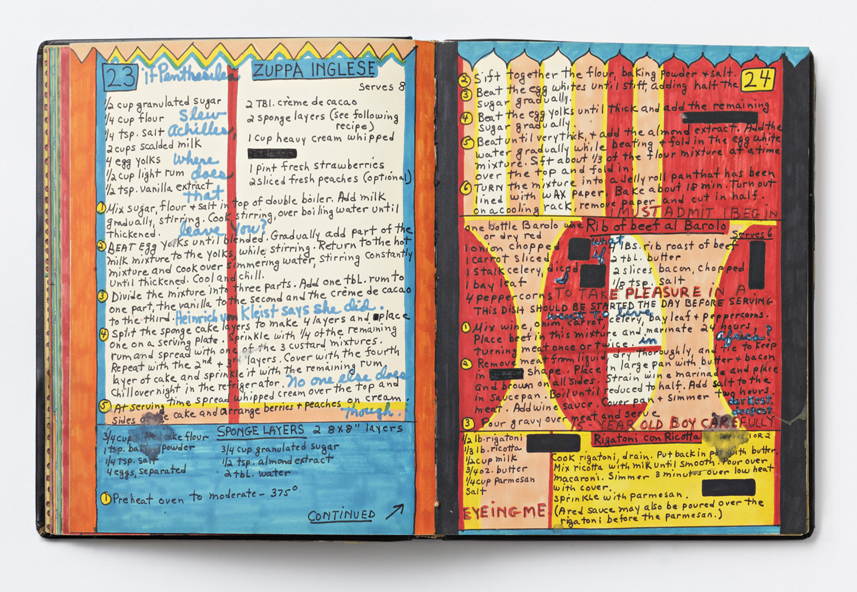 23
if Penthesilea
ZUPPA INGLESE
Serves 8
½ cup granulated sugar
¼ cup flour
Slew
¼ tsp. Salt
Achilles,
2 cups scalded milk
4 egg yolks
where
½ cup light rum
does
½ tsp. vanilla extract
that
2 TBl. crème de cacao
2 sponge layers (see following
recipe)
1 cup heavy cream whipped
1 pint fresh strawberries
2 sliced fresh peaches (optional)
① Mix sugar, flour + salt in top of double boiler. Add milk
gradually, stirring. Cook stirring, over boiling water until
thickened.
leave you?
② BEAT Egg Yolks until blended. Gradually add part of the
milk mixture to the yolks, while stirring. Return to the hot
mixture and cook over simmering water, stirring constantly
until thickened. Cool and chill.
③ Divide the mixture into three parts. Add one tbl. rum to
one part, the vanilla to the second and the crème de cacao
to the third.
Heinrich von Kleist says she did.
④ Split the sponge cake layers to make 4 layers and place
one on a serving plate. Sprinkle with ¼ of the remaining
rum and spread with one of the 3 custard mixtures.
Repeat with the 2nd + 3rd layers. Cover with the fourth
layer of cake and sprinkle it with the remaining rum.
Chill overnight in the refrigerator.
No one else does
though
⑤ At serving time spread whipped cream over the top and
sides cake and arrange berries + peaches on cream.
SPONGE LAYERS 2 8x8" layers
3/4 cup cake flour
1 tsp. baking powder
¼ tsp. salt
4 eggs, separated
3/4 cup granulated sugar
½ tsp. almond extract
2 tbl. water
① Preheat oven to moderate - 375°
CONTINUED
24
② Sift together the flour, baking powder + salt.
③ Beat the egg whites until stiff, adding half the
sugar gradually.
④ Beat the egg yolks until thick and add the remaining
sugar gradually.
⑤ Beat until very thick, + add the almond extract. Add the
water gradually while beating + fold in the egg white
mixture. Sift about ⅓ of the flour mixture at a time
over the top and fold in.
⑥ TURN the mixture into a Jelly roll pan that has been
lined with wax paper. Bake about 18 min. Turn out
on a cooling rack, remove paper and cut in half.
I MUST ADMIT I BEGIN
Rib of beef al Barolo
Serves 6
one bottle Barolo wine
or dry red
1 onion chopped
1 carrot sliced
1 stalk celery, diced
1 bay leaf
4 peppercorns
what
if
lbs. rib roast of beef
2 tbl. butter
2 slices bacon, chopped
1/8 tsp. Salt
TO TAKE PLEASURE IN A
THIS DISH SHOULD BE STARTED THE DAY BEFORE SERVING
to live
① Mix wine, onion, carrot, celery, bay leaf + peppercorns.
Place beef in this mixture and marinate 24 hours,
turning meat once or twice.
in
africa?
② Remove meat from dry thoroughly, and tie to keep
in shape. Place in large pan with butter + bacon
and brown on all sides. Strain wine marinade and place
in saucepan. Boil until reduced to half. Add salt to the
meat. Add wine sauce. Cover pan + simmer two hours.
darkest
deepest
③ Pour gravy over meat and serve.
15 YEAR OLD BOY CAREFULLY
Rigatoni con Ricotta
FOR 2
½ lb. rigatoni
⅓ lb. ricotta
½ cup milk
3/4 oz. butter
¼ cup parmesan
Salt
EYEING ME
Cook rigatoni, drain. Put back in pan with butter.
Mix ricotta with milk until smooth. Pour over
macaroni. Simmer 3 minutes over low heat
with cover.
Sprinkle with parmesan.
(A red sauce may also be poured over the
rigatoni before the parmesan.)